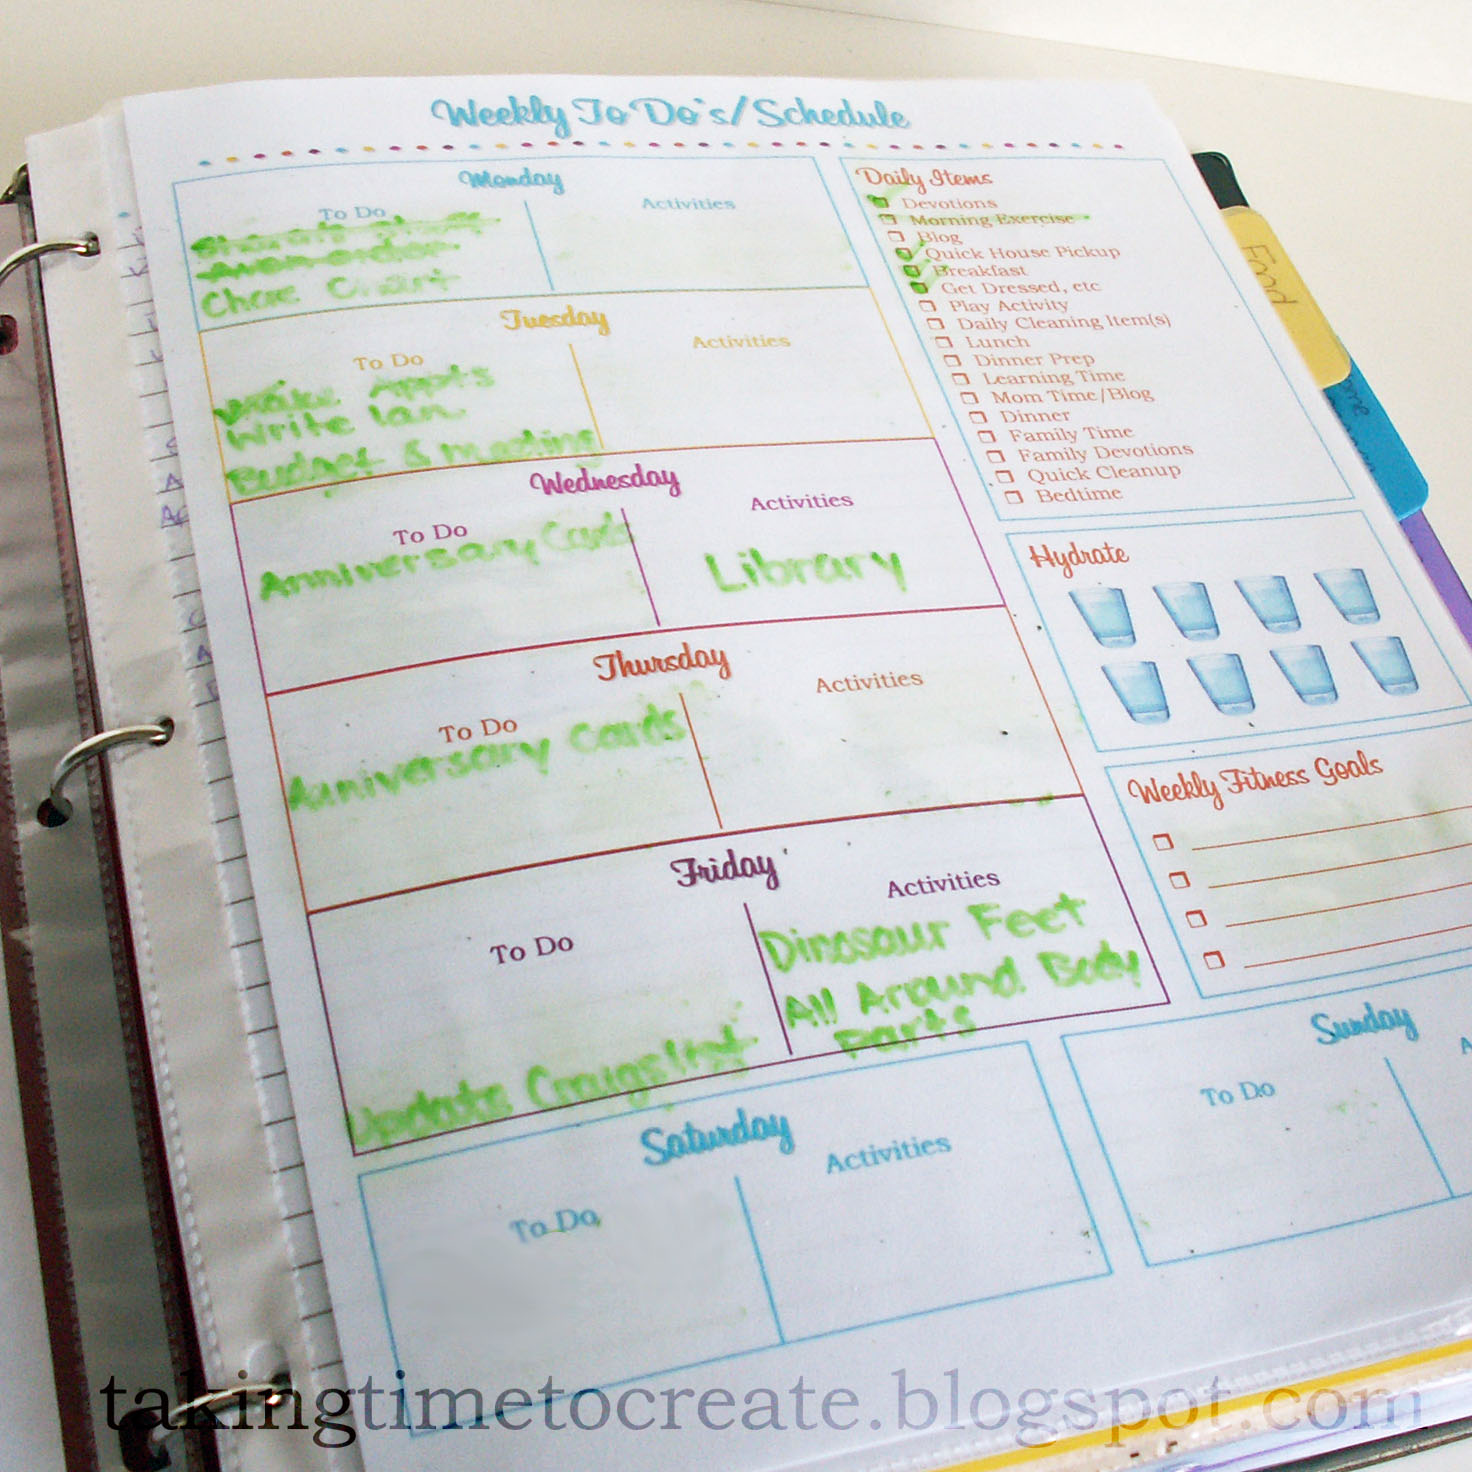 Weekly To Do's/Schedule
Monday
To Do
Activities
Chore Chart
Tuesday
To Do
Activities
Make Appts
Write Ian
Budget & meeting
Wednesday
To Do
Activities
Anniversary Cards
Library
Thursday
To Do
Activities
Anniversary Cards
Friday
To Do
Activities
Update Craigslist
Dinosaur Feet
All Around Body
Parts
Saturday
To Do
Activities
Sunday
To Do
Daily Items
Devotions
Morning Exercise
Blog
Quick House Pickup
Breakfast
Get Dressed, etc
Play Activity
Daily Cleaning Item(s)
Lunch
Dinner Prep
Learning Time
Mom Time/Blog
Dinner
Family Time
Family Devotions
Quick Cleanup
Bedtime
Hydrate
Weekly Fitness Goals
Food
takingtimetocreate.blogspot.com